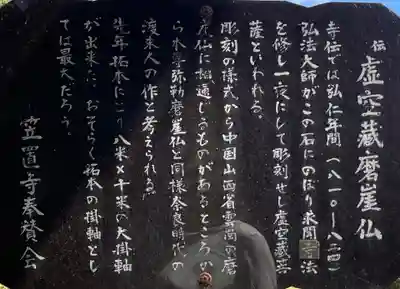 伝
虚空蔵磨崖仏
寺伝では弘仁年間(八一〇~八二四)
弘法大師がこの石にのぼり求聞持法
を修し一夜にして彫刻せし虚空蔵菩
薩といわれる。
彫刻の様式から中国山西省雲崗の磨
崖仏に相通じるものがあるところか
ら本尊弥勒磨崖仏と同様奈良時代の
渡来人の作と考えられる。
先年拓本により八米×十米の大掛軸
が出来た。おそらく拓本の掛軸とし
ては最大だろう。
笠置寺奉賛会